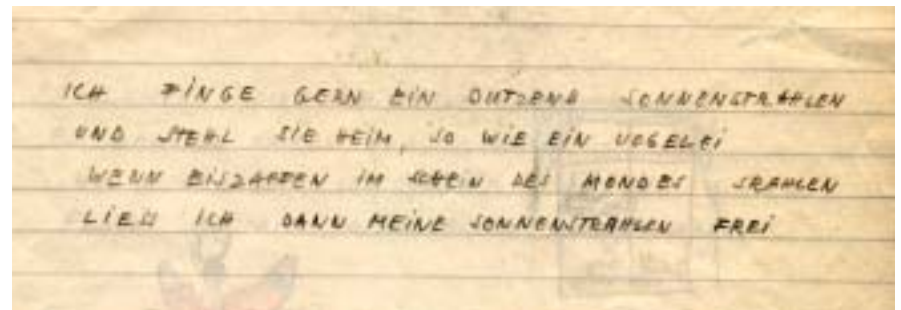 ICH FINGE GERN EIN DUTZEND SONNENSTRAHLEN
UND STEHL SIE HEIM, SO WIE EIN VOGELEI
WENN EISZAPFEN IM SCHEIN DES MONDES SRAHLEN
LIESS ICH DANN MEINE SONNENSTRAHLEN FREI